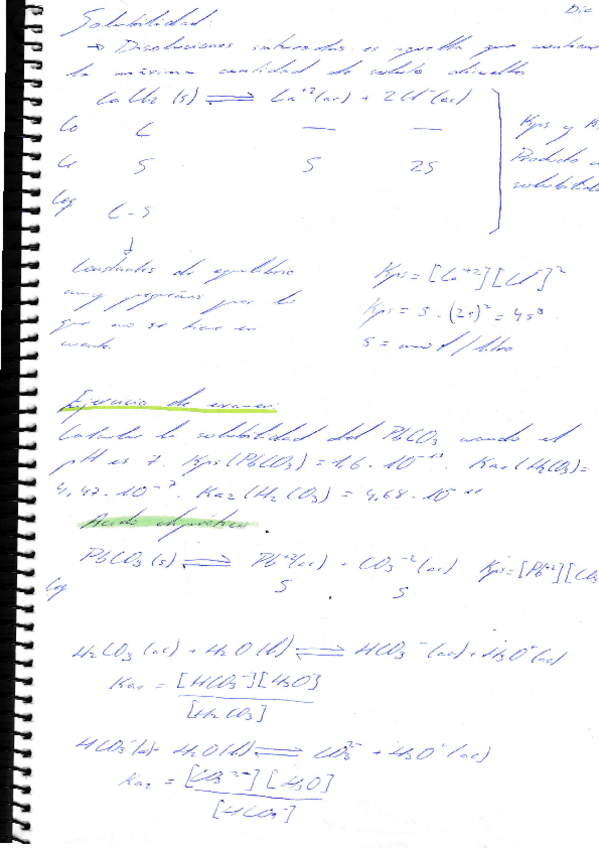 Dic
Solubilidad:
→ Disoluciones saturadas: es aquella que contiene
la máxima cantidad de soluto disuelto
CaCl2 (s) ⇌ Ca+2 (ac) + 2Cl-(ac)
Co C — —
Cr S S 2S
Ceq C-S
Kps y
Producto
solubilidad
↓
Constantes de equilibrio
muy pequeñas por lo
que no se tiene en
cuenta
Kps = [Ca+2][Cl-]2
Kps = S · (2s)2 = 4s3
S = mol / litro
Ejercicio de examen:
Calcular la solubilidad del PbCO3 cuando el
pH es 7. Kps (PbCO3) = 1,6 · 10-13. Ka1 (H2CO3) =
4,47 · 10-7. Ka2 (H2CO3) = 4,68 · 10-11
Ácido diprótico.
PbCO3 (s) ⇌ Pb+2(ac) + CO3-2 (ac) Kps = [Pb+2][CO3
Ceq S S
H2CO3 (ac) + H2O (l) ⇌ HCO3- (ac) + H3O+ (ac)
Ka1 = [HCO3-][H3O+]
[H2CO3]
HCO3-(ac) + H2O (l) ⇌ CO32- + H3O+ (ac)
Ka2 = [CO32-] [H3O]
[HCO3-]